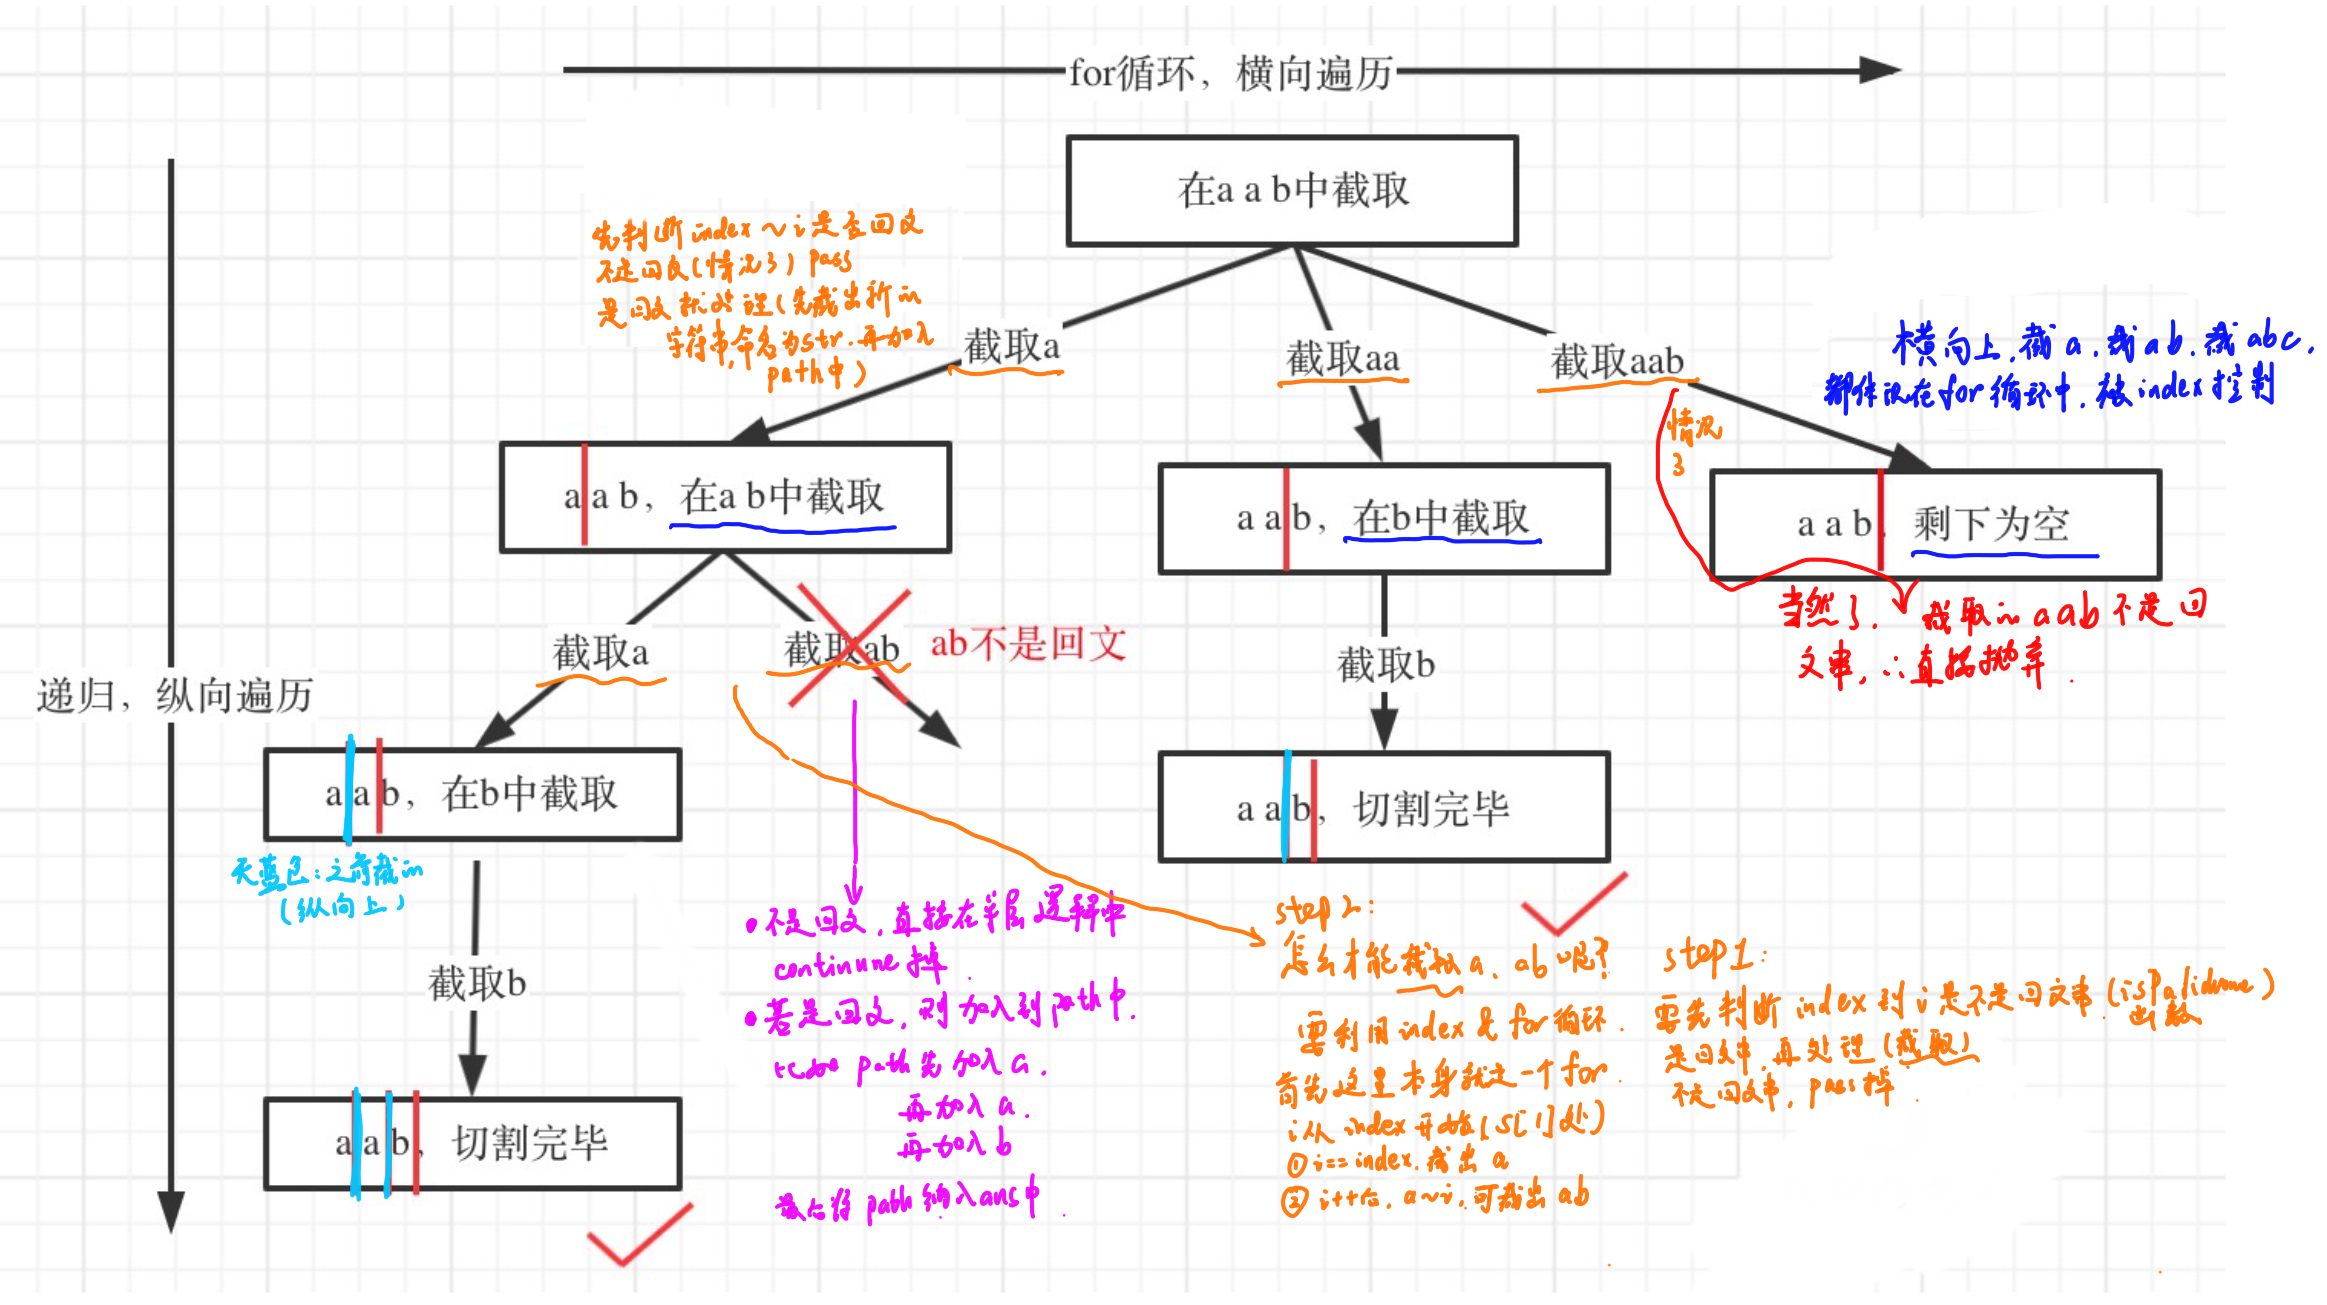 for循环，横向遍历
在a a b中截取
先判断index~i是否回文
不是回文(情况3) pass
是回文就处理(先截出新in
字符串,命名为str.再加入
path中)
截取a
截取aa
截取aab
横向上,截a.截ab.截abc.
都体现在for循环中.被index控制
情况
3
a a b，在a b中截取
a a b，在b中截取
a a b，剩下为空
当然了. 截取in aab不是回
文串,∴直接抛弃.
截取a
截取ab
ab不是回文
截取b
递归，纵向遍历
a a b，在b中截取
a a b，切割完毕
天蓝色:之前截in
(纵向上)
截取b
不是回文,直接在单层逻辑中
continune掉.
若是回文,则加入到path中.
path先加入a.
再加入a.
再加入b
最后将path纳入ans中.
step2:
怎么才能截取a、ab呢?
要利用index及for循环.
首先这里本身就是一个for.
i从index开始(S[1]处)
①i==index.截出a
②i++后.a~i.可截出ab
step1:
要先判断index到i是不是回文串(isPalidrome)
函数
是回文串,再处理(截取)
不是回文串,pass掉.
a a b，切割完毕